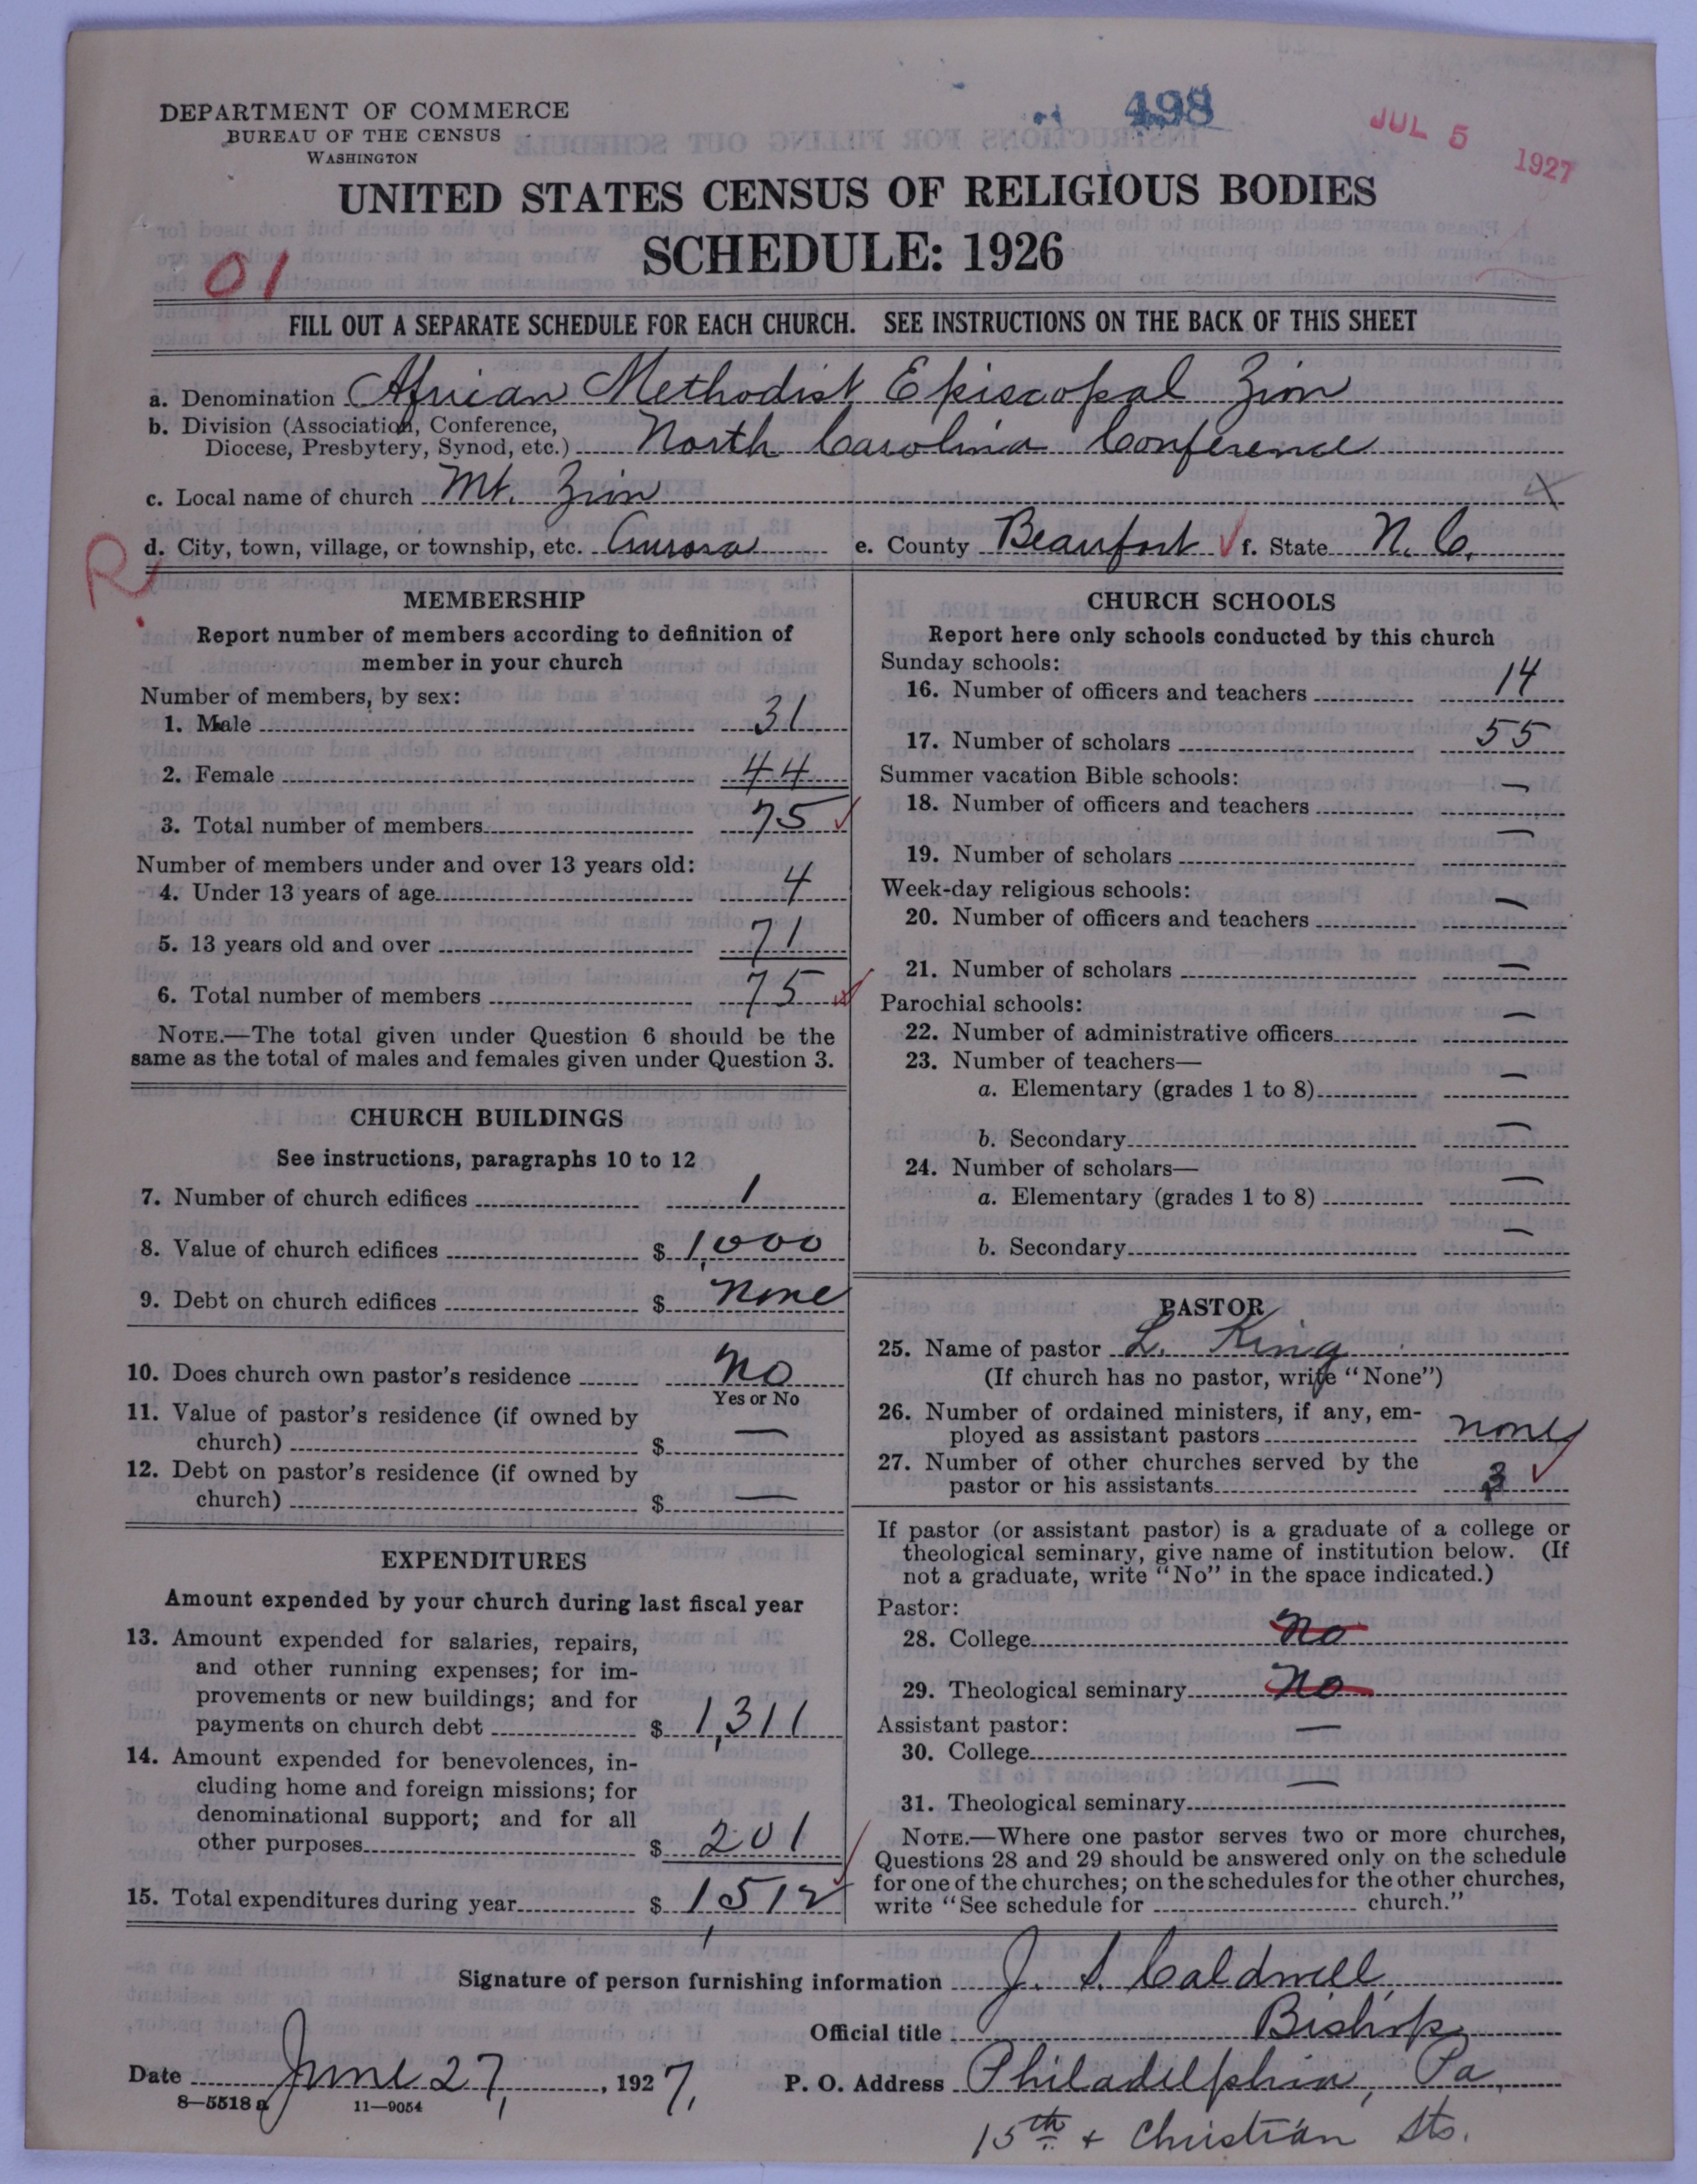 498
JUL 5 1927
DEPARTMENT OF COMMERCE
BUREAU OF THE CENSUS
WASHINGTON
UNITED STATES CENSUS OF RELIGIOUS BODIES
SCHEDULE: 1926
01
FILL OUT A SEPARATE SCHEDULE FOR EACH CHURCH. SEE INSTRUCTIONS ON THE BACK OF THIS SHEET
a. Denomination African Methodist Episcopal Zion
b. Division (Association, Conference,
Diocese, Presbytery, Synod, etc.) North Carolina Conference
c. Local name of church Mt. Zion
R
d. City, town, village, or township, etc. Aurora e. County Beaufort f. State N. C.
MEMBERSHIP
Report number of members according to definition of
member in your church
Number of members, by sex:
1. Male 31
2. Female 44
3. Total number of members 75
Number of members under and over 13 years old:
4. Under 13 years of age 4
5. 13 years old and over 71
6. Total number of members 75
NOTE.—The total given under Question 6 should be the
same as the total of males and females given under Question 3.
CHURCH BUILDINGS
See instructions, paragraphs 10 to 12
7. Number of church edifices 1
8. Value of church edifices $ 1,000
9. Debt on church edifices $ None
10. Does church own pastor's residence No
Yes or No
11. Value of pastor's residence (if owned by
church) $ —
12. Debt on pastor's residence (if owned by
church) $ —
EXPENDITURES
Amount expended by your church during last fiscal year
13. Amount expended for salaries, repairs,
and other running expenses; for im-
provements or new buildings; and for
payments on church debt $ 1,311
14. Amount expended for benevolences, in-
cluding home and foreign missions; for
denominational support; and for all
other purposes $ 201
15. Total expenditures during year $ 1,512
CHURCH SCHOOLS
Report here only schools conducted by this church
Sunday schools:
16. Number of officers and teachers 14
17. Number of scholars 55
Summer vacation Bible schools:
18. Number of officers and teachers —
19. Number of scholars —
Week-day religious schools:
20. Number of officers and teachers —
21. Number of scholars —
Parochial schools:
22. Number of administrative officers —
23. Number of teachers—
a. Elementary (grades 1 to 8) —
b. Secondary —
24. Number of scholars—
a. Elementary (grades 1 to 8) —
b. Secondary —
PASTOR
25. Name of pastor L. King
(If church has no pastor, write "None")
26. Number of ordained ministers, if any, em-
ployed as assistant pastors none
27. Number of other churches served by the
pastor or his assistants 3
If pastor (or assistant pastor) is a graduate of a college or
theological seminary, give name of institution below. (If
not a graduate, write "No" in the space indicated.)
Pastor:
28. College No
29. Theological seminary No
Assistant pastor:
30. College —
31. Theological seminary —
NOTE.—Where one pastor serves two or more churches,
Questions 28 and 29 should be answered only on the schedule
for one of the churches; on the schedules for the other churches,
write "See schedule for church."
Signature of person furnishing information J. S. Caldwell,
Official title Bishop
Date June 27, 1927, P. O. Address Philadelphia, Pa,
8—5518 a 11—9054
15th + Christian Sts.